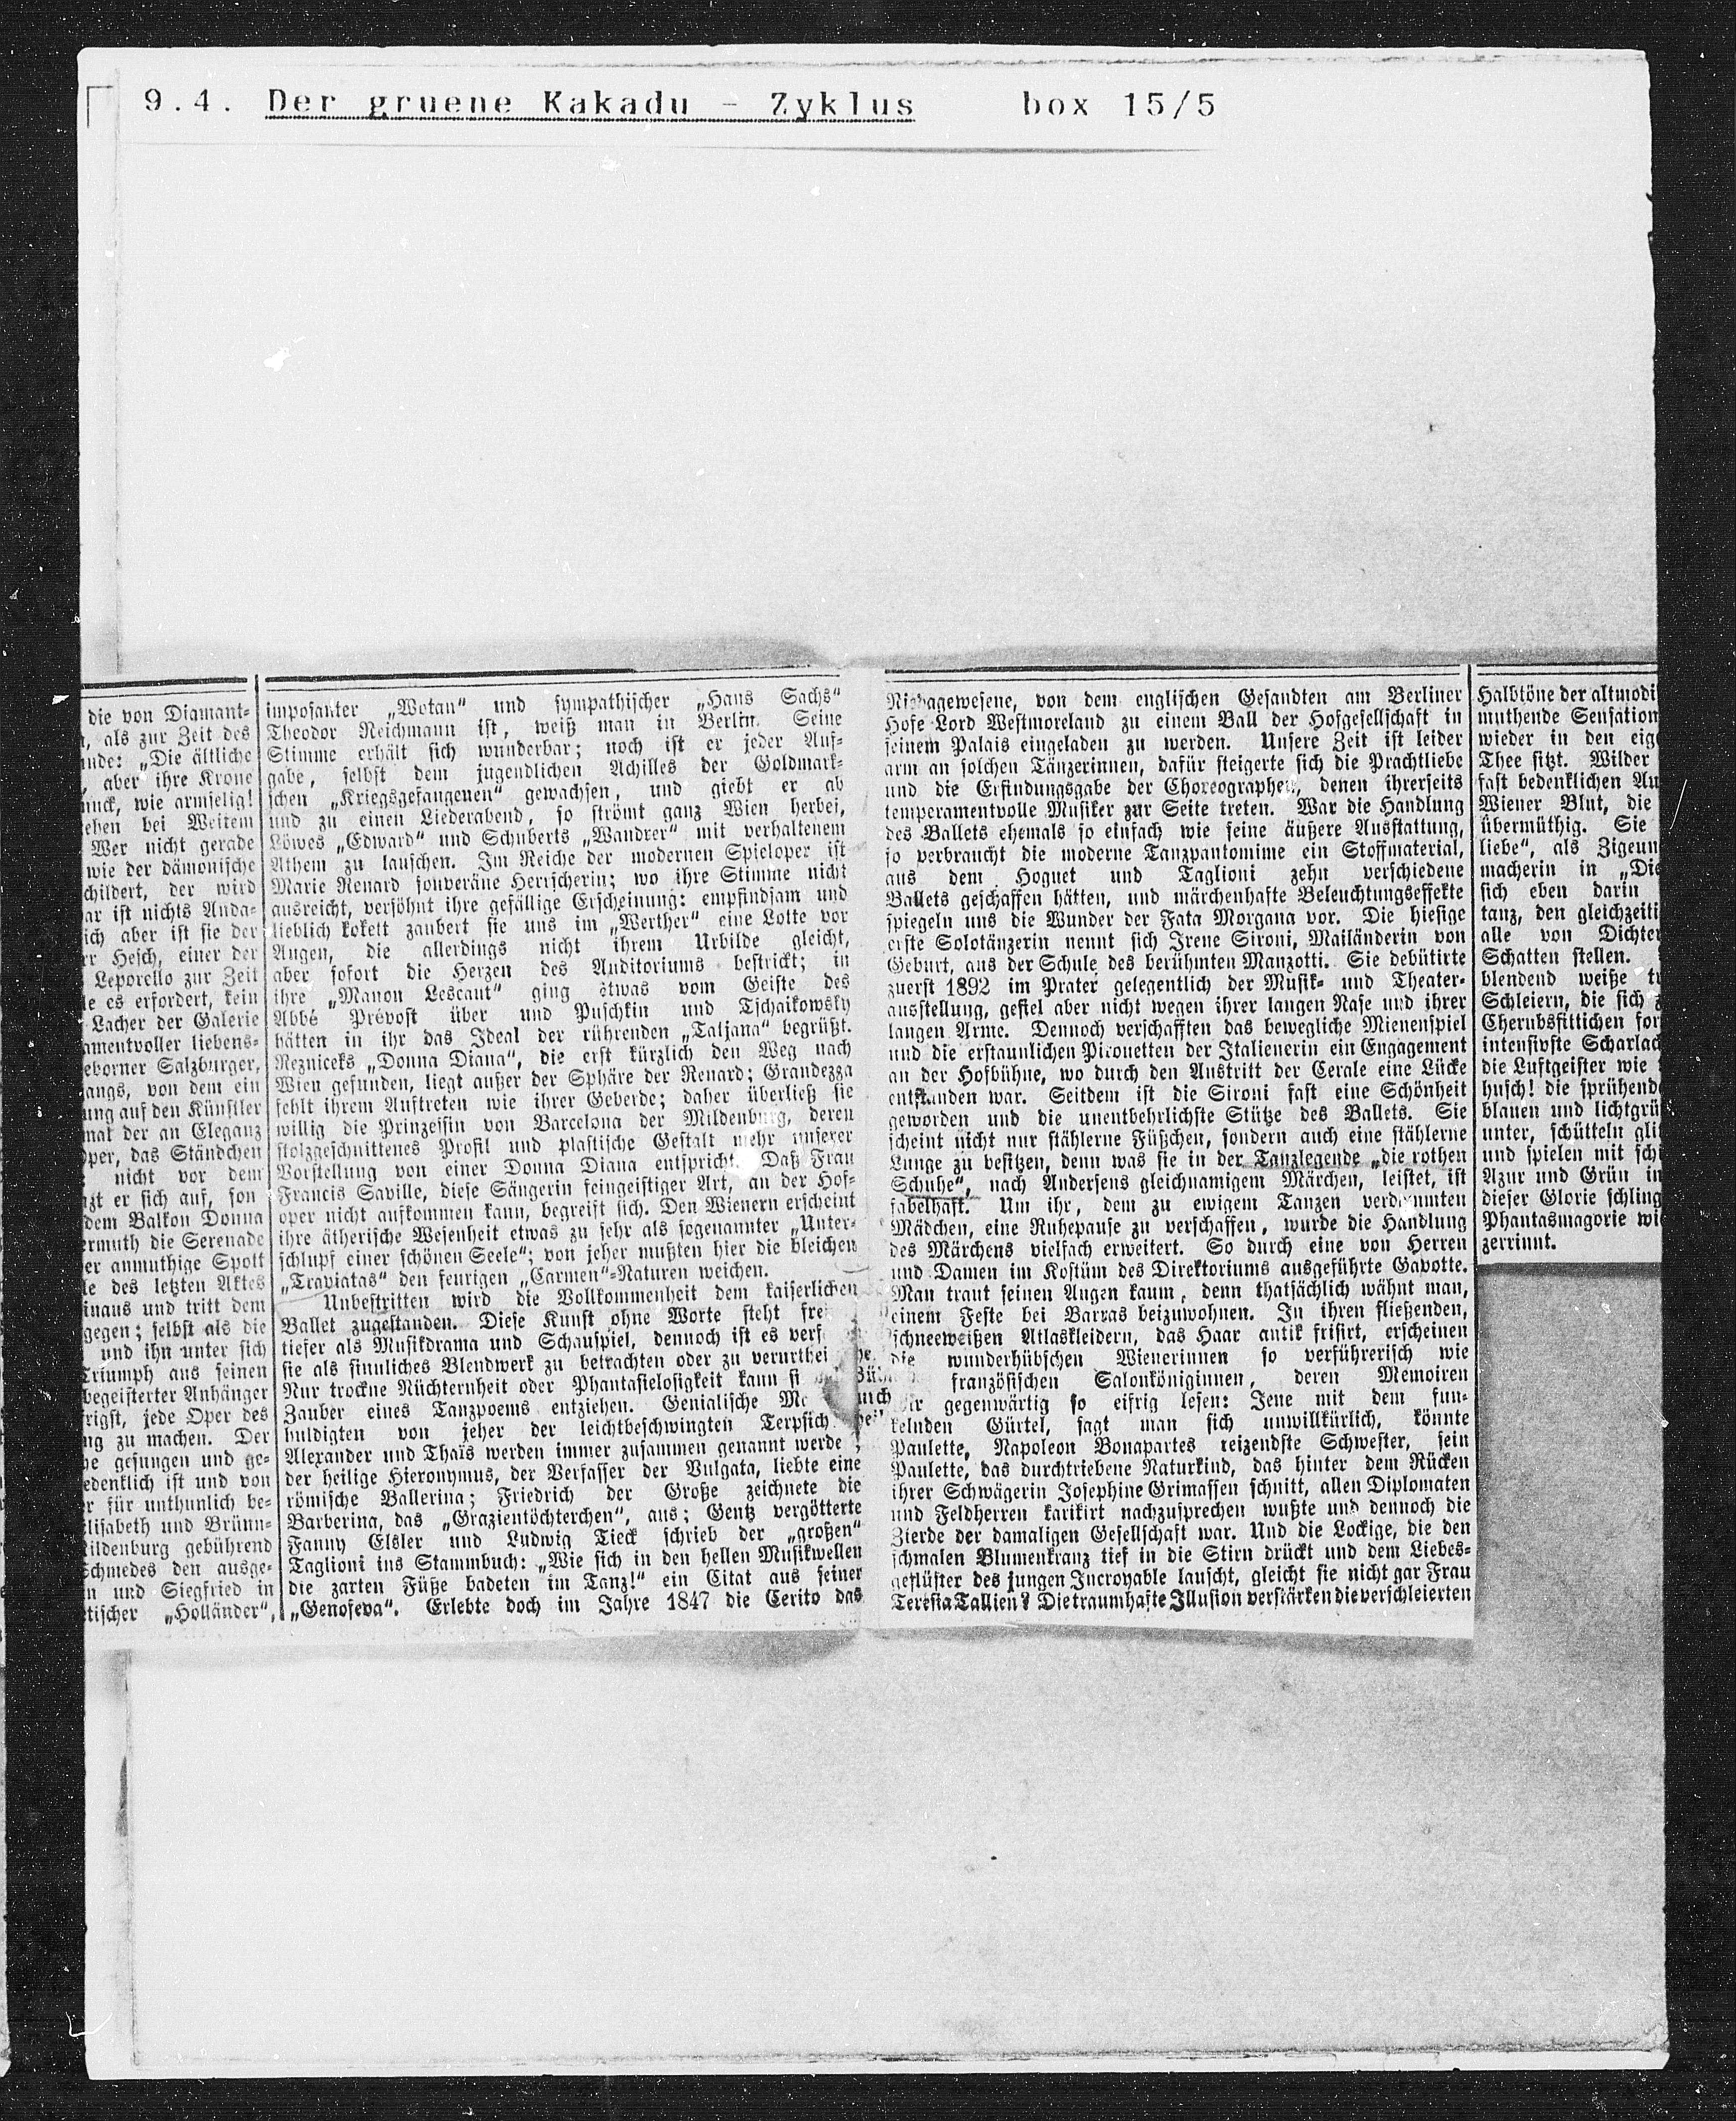 9.4. Der gruene Kakadu - Zyklus box 15/5
die von Diamant-
als zur Zeit des
„Die ältliche
aber ihre Krone
wie armselig!
bei Weitem
Wer nicht gerade
wie der dämonische
der wird
ist nichts Anda-
aber ist sie der
Hesch, einer der
Leporello zur Zeit
es erfordert, kein
Lacher der Galerie
liebens-
Salzburger,
von dem ein
auf den Künstler
der an Eleganz
das Ständchen
nicht vor dem
er sich auf, son
dem Balkon Donna
die Serenade
anmuthige Spott
des letzten Aktes
und tritt dem
selbst als die
und ihn unter sich
Triumph aus seinen
begeisterter Anhänger
jede Oper des
zu machen. Der
gesungen und ge-
ist und von
für unthunlich be-
und Brünn-
gebührend
den ausge-
und Siegfried in
„Holländer“,
imposanter „Wotan“ und sympathischer „Hans Sachs“
Theodor Reichmann ist, weiß man in Berlin. Seine
Stimme erhält sich wunderbar; noch ist er jeder Auf-
gabe, selbst dem jugendlichen Achilles der Goldmark-
schen „Kriegsgefangenen“ gewachsen, und giebt er ab
und zu einen Liederabend, so strömt ganz Wien herbei,
Löwes „Edward“ und Schuberts „Wandrer“ mit verhaltenem
Athem zu lauschen. Im Reiche der modernen Spieloper ist
Marie Renard souveräne Herrscherin; wo ihre Stimme nicht
ausreicht, versöhnt ihre gefällige Erscheinung: empfindsam und
lieblich kokett zaubert sie uns im „Werther“ eine Lotte vor
Augen, die allerdings nicht ihrem Urbilde gleicht,
aber sofort die Herzen des Auditoriums bestrickt; in
ihre „Manon Lescaut“ ging etwas vom Geiste des
Abbé Prévost über und Puschkin und Tschaikowsky
hätten in ihr das Ideal der rührenden „Tatjana“ begrüßt.
Rezniceks „Donna Diana“, die erst kürzlich den Weg nach
Wien gefunden, liegt außer der Sphäre der Renard; Grandezza
fehlt ihrem Auftreten wie ihrer Geberde; daher überließ sie
willig die Prinzessin von Barcelona der Mildenburg, deren
stolzgeschnittenes Profil und plastische Gestalt mehr unserer
Vorstellung von einer Donna Diana entspricht. Daß Frau
Francis Saville, diese Sängerin feingeistiger Art, an der Hof-
oper nicht aufkommen kann, begreift sich. Den Wienern erscheint
ihre ätherische Wesenheit etwas zu sehr als sogenannter „Unter-
schlupf einer schönen Seele“; von jeher mußten hier die bleichen
„Traviatas“ den feurigen „Carmen“-Naturen weichen.
Unbestritten wird die Vollkommenheit dem kaiserlichen
Ballet zugestanden. Diese Kunst ohne Worte steht
tiefer als Musikdrama und Schauspiel, dennoch ist es
sie als sinnliches Blendwerk zu betrachten oder zu
Nur trockne Nüchternheit oder Phantasielosigkeit kann
Zauber eines Tanzpoems entziehen. Genialische
huldigten von jeher der leichtbeschwingten
Alexander und Thaïs werden immer zusammen genannt
der heilige Hieronymus, der Verfasser der Vulgata, liebte eine
römische Ballerina; Friedrich der Große zeichnete die
Barberina, das „Grazientöchterchen“, aus; Gentz vergötterte
Fanny Elsler und Ludwig Tieck schrieb der „großen“
Taglioni ins Stammbuch: „Wie sich in den hellen Musikwellen
die zarten Füße badeten im Tanz!“ ein Citat aus seiner
„Genofeva“. Erlebte doch im Jahre 1847 die Cerito das
Niedagewesene, von dem englischen Gesandten am Berliner
Hofe Lord Westmoreland zu einem Ball der Hofgesellschaft in
seinem Palais eingeladen zu werden. Unsere Zeit ist leider
arm an solchen Tänzerinnen, dafür steigerte sich die Prachtliebe
und die Erfindungsgabe der Choreographen, denen ihrerseits
temperamentvolle Musiker zur Seite treten. War die Handlung
des Ballets ehemals so einfach wie seine äußere Ausstattung,
so verbraucht die moderne Tanzpantomime ein Stoffmaterial,
aus dem Hoguet und Taglioni zehn verschiedene
Ballets geschaffen hätten, und märchenhafte Beleuchtungseffekte
spiegeln uns die Wunder der Fata Morgana vor. Die hiesige
erste Solotänzerin nennt sich Irene Sironi, Mailänderin von
Geburt, aus der Schule des berühmten Manzotti. Sie debütirte
zuerst 1892 im Prater gelegentlich der Musik- und Theater-
ausstellung, gefiel aber nicht wegen ihrer langen Nase und ihrer
langen Arme. Dennoch verschafften das bewegliche Mienenspiel
und die erstaunlichen Pirouetten der Italienerin ein Engagement
an der Hofbühne, wo durch den Austritt der Cerale eine Lücke
entstanden war. Seitdem ist die Sironi fast eine Schönheit
geworden und die unentbehrlichste Stütze des Ballets. Sie
scheint nicht nur stählerne Füßchen, sondern auch eine stählerne
Lunge zu besitzen, denn was sie in der Tanzlegende „die rothen
Schuhe“, nach Andersens gleichnamigem Märchen, leistet, ist
fabelhaft. Um ihr, dem zu ewigem Tanzen verdammten
Mädchen, eine Ruhepause zu verschaffen, wurde die Handlung
des Märchens vielfach erweitert. So durch eine von Herren
und Damen im Kostüm des Direktoriums ausgeführte Gavotte.
Man traut seinen Augen kaum, denn thatsächlich wähnt man,
einem Feste bei Barras beizuwohnen. In ihren fließenden,
schneeweißen Atlaskleidern, das Haar antik frisirt, erscheinen
die wunderhübschen Wienerinnen so verführerisch wie
französischen Salonköniginnen, deren Memoiren
wir gegenwärtig so eifrig lesen: Jene mit dem fun-
kelnden Gürtel, sagt man sich unwillkürlich, könnte
Paulette, Napoleon Bonapartes reizendste Schwester, sein
Paulette, das durchtriebene Naturkind, das hinter dem Rücken
ihrer Schwägerin Josephine Grimassen schnitt, allen Diplomaten
und Feldherren karikirt nachzusprechen wußte und dennoch die
Zierde der damaligen Gesellschaft war. Und die Lockige, die den
schmalen Blumenkranz tief in die Stirn drückt und dem Liebes-
geflüster des jungen Incroyable lauscht, gleicht sie nicht gar Frau
Teresia Tallien? Die traumhafte Illusion verstärken die verschleierten
Halbtöne der altmodi
muthende Sensation
wieder in den eig
Thee sitzt. Wilder
fast bedenklichen
Wiener Blut, die
übermüthig. Sie
liebe“, als Zigeun
macherin in „Die
sich eben darin
tanz, den gleichzeiti
alle von Dichter
Schatten stellen.
blendend weiße
Schleiern, die sich
Cherubsfittichen for
intensivste Scharlac
die Luftgeister wie
husch! die sprühend
blauen und lichtgrü
unter, schütteln gli
und spielen mit
Azur und Grün in
dieser Glorie schling
Phantasmagorie wi
zerrinnt.